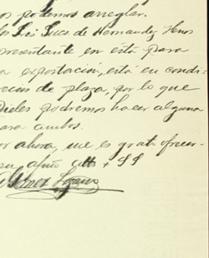 os podemos arreglar.
los Srs Sucs de Hernandez Hnos
presentante en esta para
a exportación, está en condi-
recios de plaza, por lo que
Pieles podremos hacer alguna
para ambos.
or ahora, me es grato ofrecer-
su afmo